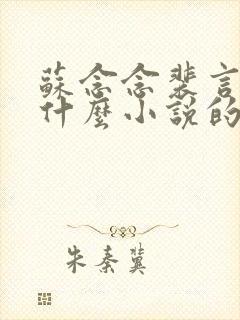 蘇念念裴言
什麼小說的
朱秦冀